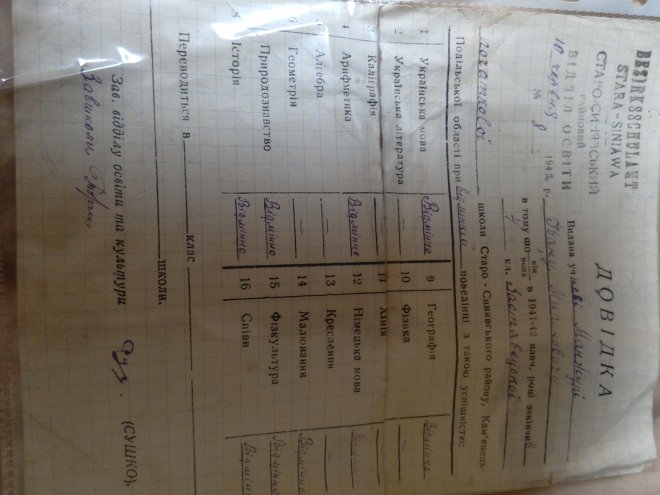 BEZIRKSSCHULAMT
STARA-SINIAWA
СТАРО-СИНЯВСЬКИЙ
РАЙОННИЙ
ВІДДІЛ ОСВІТИ
10 червня 1942 р.
№ 8
ДОВІДКА
Видана учневі Манжулі
Івану
в тому що він вона в 1941-42 навч. році закінчив
4 кл.
початкової школи Старо-Синявського району, Кам'янець-
Подільської області при відмінній поведінці з такою успішністю:
1 Українська мова Відмінно
2 Українська література —
3 Каліграфія
4 Арифметика Відмінно
5 Алгебра —
6 Геометрія —
7 Природознавство Відмінно
8 Історія Відмінно
9 Географія Відмінно
10 Фізика —
11 Хімія
12 Німецька мова
13 Креслення —
14 Малювання Відмінно
15 Фізкультура Відмінно
16 Співи Відмінно
Переводиться в клас
школи.
Зав. відділу освіти та культури (СУШКО).
Завшколи